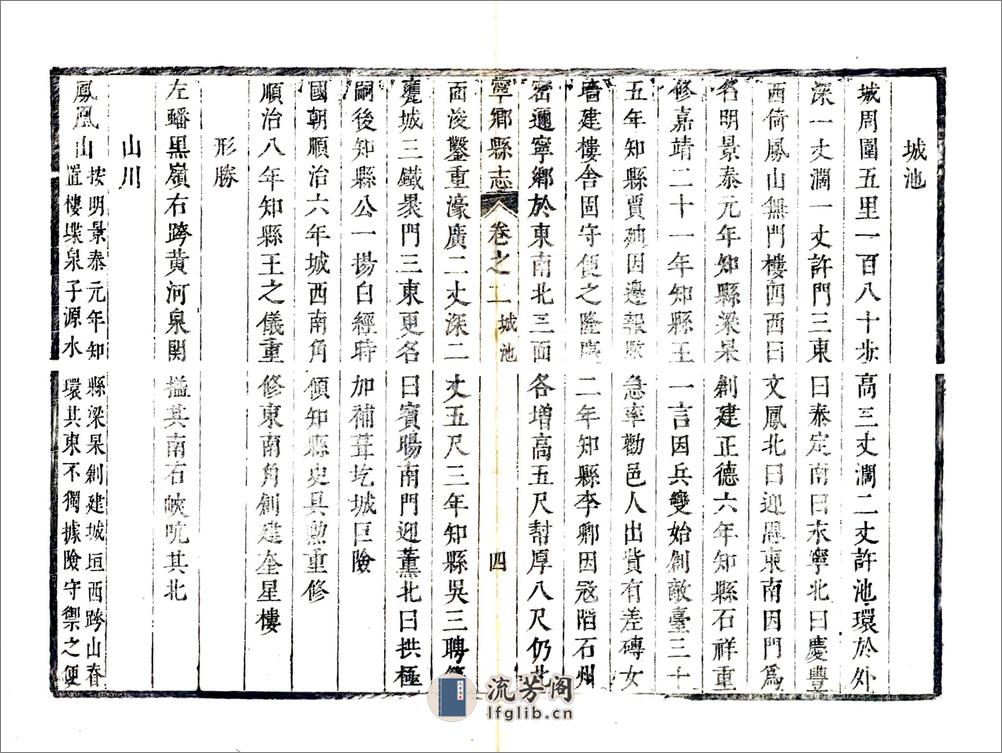 城池
城周圍五里一百八十步高三丈濶二丈許池環於外
深一丈濶一丈許門三東曰泰定南曰永寧北曰慶豐
西倚鳳山無門樓四西曰文鳳北曰迎恩東南因門爲
名明景泰元年知縣梁杲創建正德六年知縣石祥重
修嘉靖二十一年知縣王一言因兵變始創敵臺三十
五年知縣賈 因邊報 急率勸邑人出貲有差磚女
墻建樓舍固守便之隆慶二年知縣李卿因寇陷石州
密邇寧鄉於東南北三面各增高五尺幫厚八尺仍北
寧鄉縣志 卷之二 城池 四
面浚鑿重濠廣二丈深二丈五尺三年知縣吳三聘
甕城三鐵裹門三東更名曰賓暘南門迎薰北曰拱極
嗣後知縣公一揚白經時加補葺圪城巨險
國朝順治六年城西南角傾知縣史具勲重修
順治八年知縣王之儀重修東南角創建奎星樓
形勝
左蟠黑嶺右跨黃河泉關搤其南石峽吭其北
山川
鳳凰山 按明景泰元年知縣梁杲創建城垣西跨山脊
置樓堞泉子源水環其東不獨據險守禦之便
流芳阁
lfglib.cn